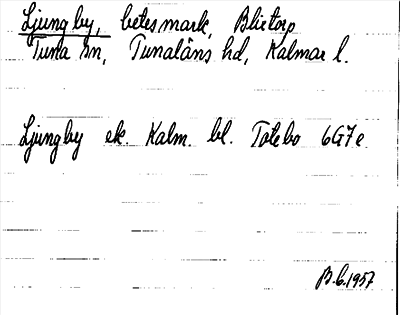 Ljungby, betesmark, Blietorp
Tuna sn, Tunaläns hd, Kalmar l.
Ljungby ek. Kalm. bl. Totebo 6G7e
B.L. 1957